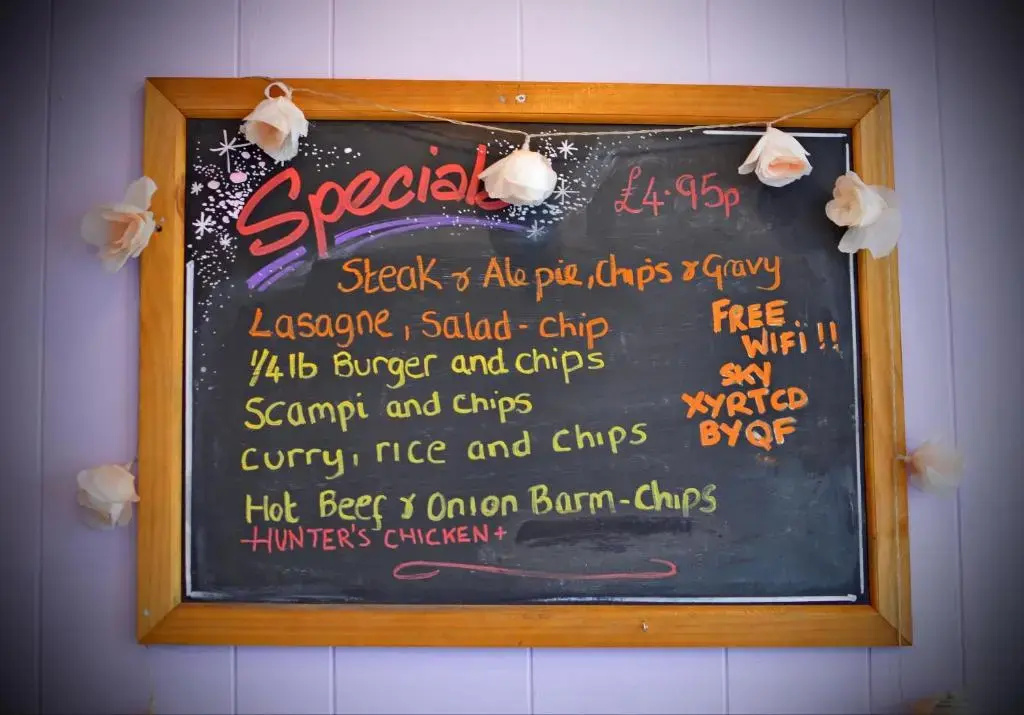 Specials
£4.95p
Steak & Ale pie, Chips & Gravy
Lasagne, Salad - chip
1/4 lb Burger and chips
Scampi and chips
curry, rice and chips
Hot Beef & Onion Barm-Chips
HUNTER'S CHICKEN +
FREE
WiFi !!
SKY
XYRTCD
BYQF